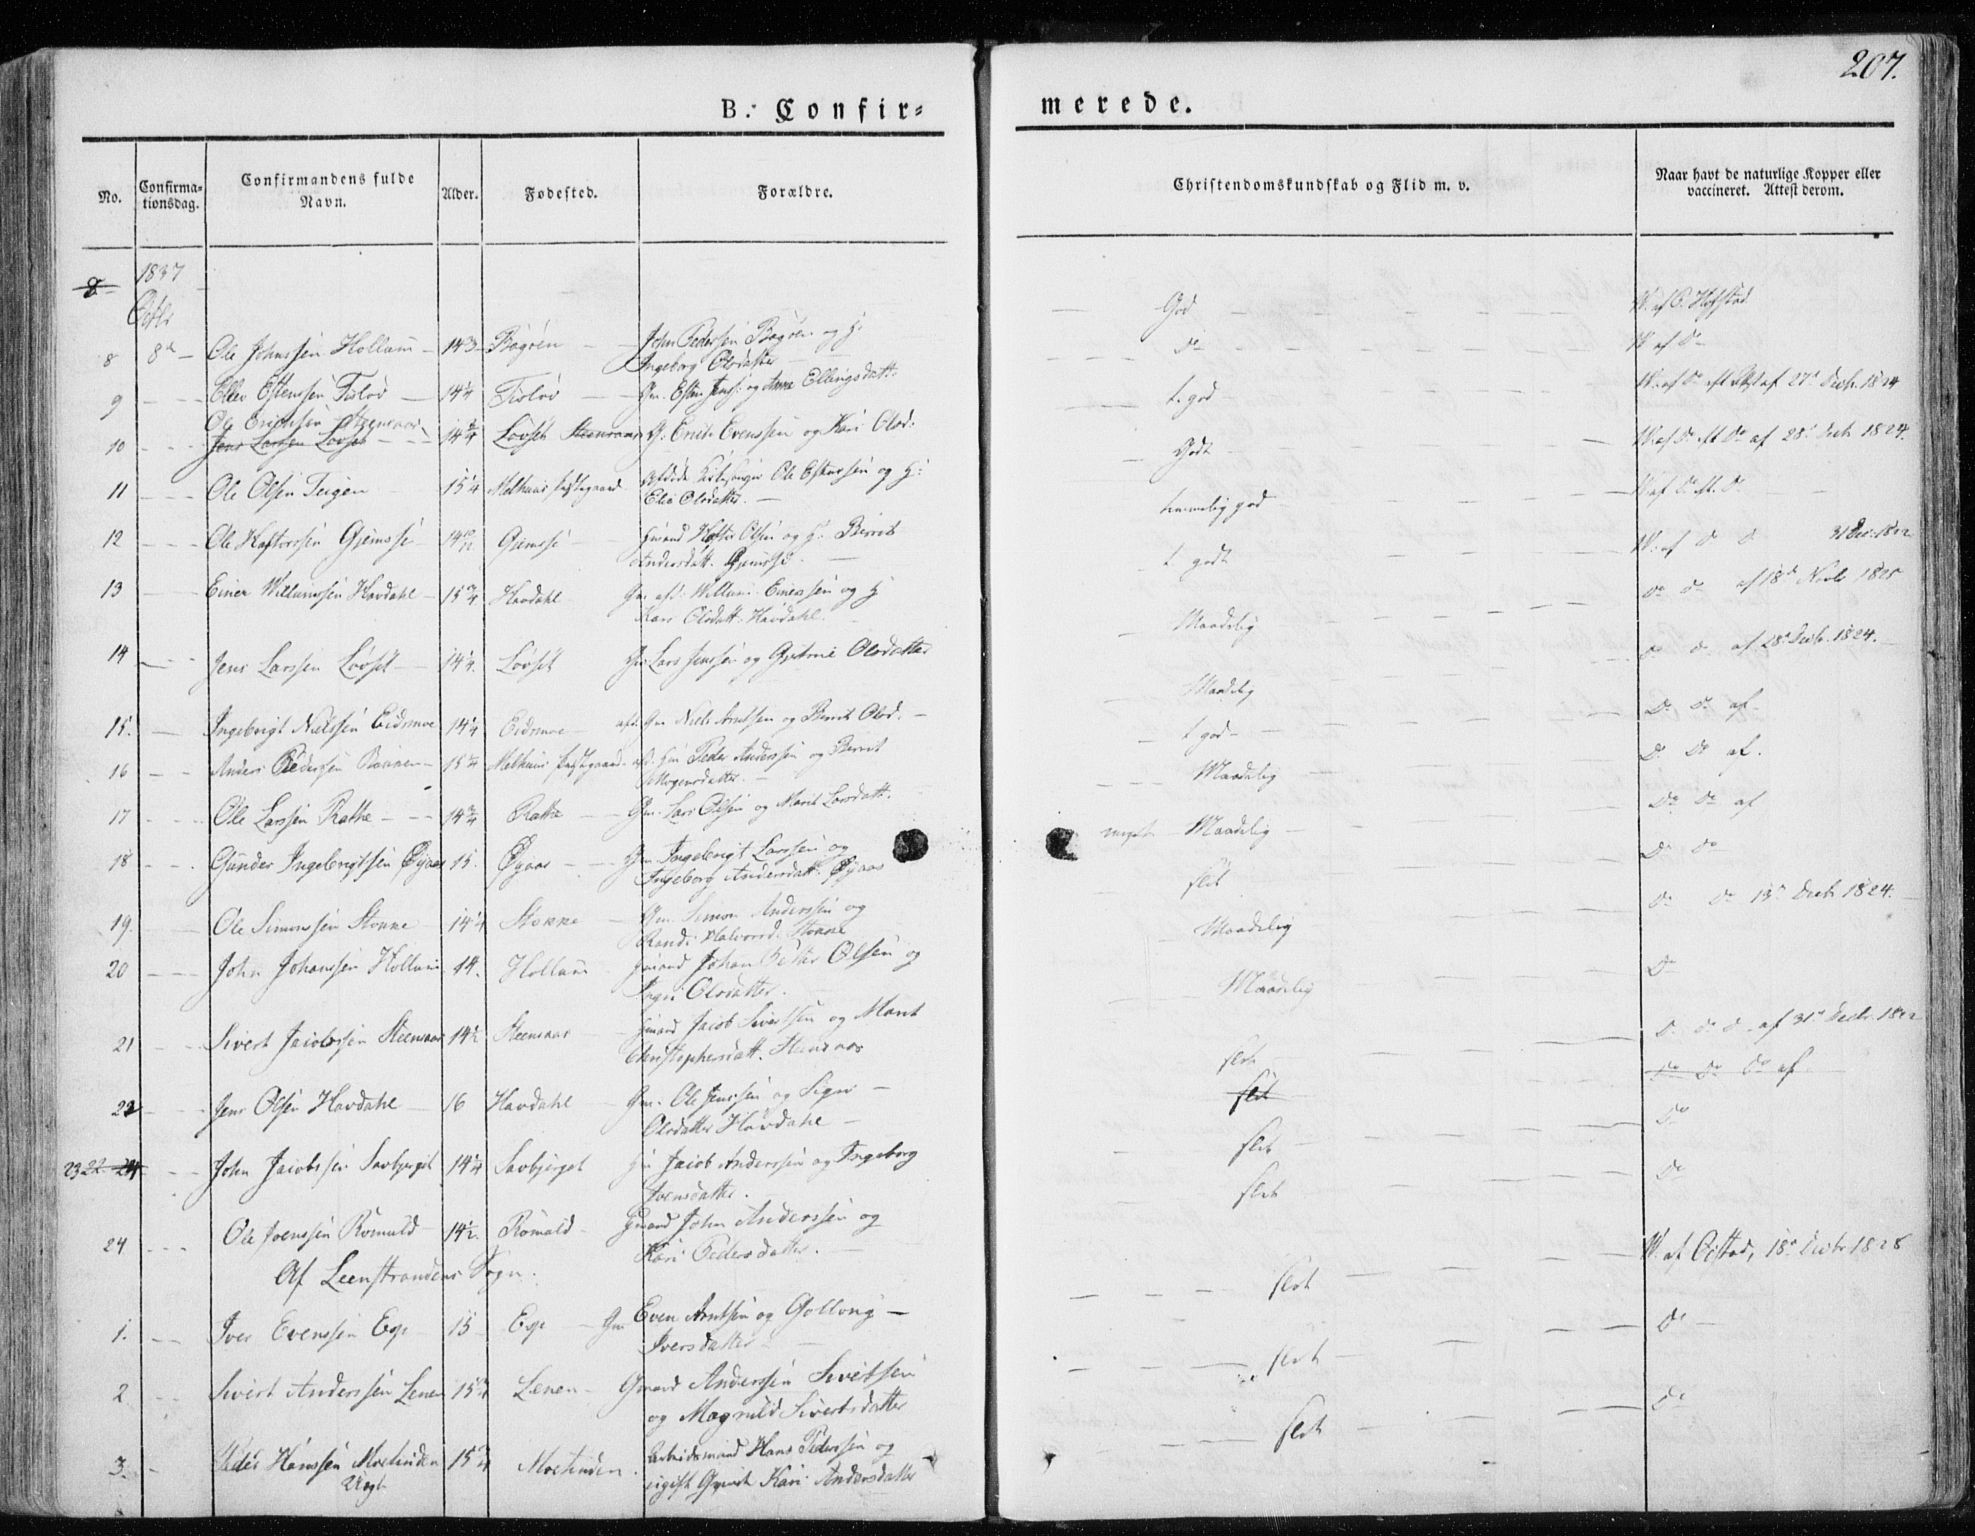 207.
B. Confir=
merede.
No.
Confirma-
tionsdag.
Confirmandens fulde
Navn.
Alder.
Fødested.
Forældre.
Christendomskundskab og Flid m. v.
Naar havt de naturlige Kopper eller
vaccineret. Attest derom.
1837
Octbr
God V. af O. Hofstad
8 8de Ole Johnssen Hollum 14 3 Bagøen John Pedersen Bagøen og H:
Ingeborg Olsdatter
Do V. af Do
9 Eller Estensen Tislöv 14 1/4 Tislöv Gm. Esten Jens: og Anne Ellingsdatt:
t. god V. af Do Att af 27de Decbr. 1824
10 Ole Erichsen Steensaas
Jens Larsen Løvset 14 1/4 Løvset Steensaas G: Erich Evenssen og Kari Olsd:
Godt V. af Do Att. Do af 28de Decbr 1824.
11 Ole Olsen Teigen 15 1/4 Melhuus Præstegaard Ole Estensen og H:
Eli Olsdatter
temmelig god V. af Do Att. Do
12 Ole Haftorssen Gjemsse 14 10/12 Gjemsse Gmand Olsen og H. Berrit
Andersdatt. Gjemsse
t. godt V. af D D 31 Dec. 1822
13 Einer Willumssen Havdahl 15 3/4 Havdahl Gm. afd. Willum Einersen og H
Kari Olsdatt. Havdahl
Maadelig Do Do af 18de Novbr 1825
14 Jens Larssen Løvset 14 1/4 Løvset Gm Lars Jenssen og Gjetrud Olsdatter
Maadelig D. D. af 28de Decbr. 1824.
15. Ingebrigt Nielssen Eidsmoe 14 1/4 Eidsmoe afd. Gm Niels Arntsen og Berrit Olsd.
t. god Do Do af
16 Anders Pedersen 15 1/4 Melhuus Præstegaard afd. Gm Peder Anderssen og Berrit
Mogensdatter
Maadelig D. Do af.
17 Ole Larssen Rathe 14 3/4 Rathe Gm. Lars Olsen og Marit Larsdatt.
Maadelig Do Do af
18 Gunder Ingebrigtsen Øyaas 15. Øyaas Gm. Ingebrigt Larssen og
Ingeborg Andersdatt. Øyaas
slet Do Do
19. Ole Simonssen Stokke 14 1/4 Stokke Gm. Simon Anderssen og
Randi Halvorsd. Stokke
Maadelig Do Do 13de Decbr 1824.
20 John Johanssen Hollum 14. Hollum Gmand Johan Olsen og
Olsdatter
Maadelig Do
21 Sivert Jacobssen Steensaas 14 1/2 Steensaas Gmand Jacob Sivertssen og Marit
Christophersdatt. Steensaas
slet D. D. D. af 31de Decbr 1822
slet Do Do Do af.
22 Jens Olsen Havdahl 16 Havdahl Gm. Ole Jenssen og Signe
Olsdatter Havdahl
slet Do
23 22 24 John Jacobssen Savbjerget 14 1/4 Savbjerget Gm Jacob Anderssen og Ingeborg
Ivensdatter.
slet Do
24 Ole Joenssen Romuld 14 1/2. Romuld Gmand John Anderssen og
Kari Pedersdatter.
slet V. af Oistad, 18de Decbr 1828
Af Leenstrandens Sogn.
1. Iver Evenssen Esp 15 Esp Gm Even Arntsen og Gollaug
Iversdatter
slet Do
2 Sivert Anderssen Lenen 15 3/4 Lenen Gmand Anderssen Sivertsen
og Magnild Sivertsdatter
slet Do
3. Peder Hanssen Moeslinden
Uægt
15 3/4 Moeslinden. Arbeidsmand Hans Pederssen og
ugift Kari Andersdatter